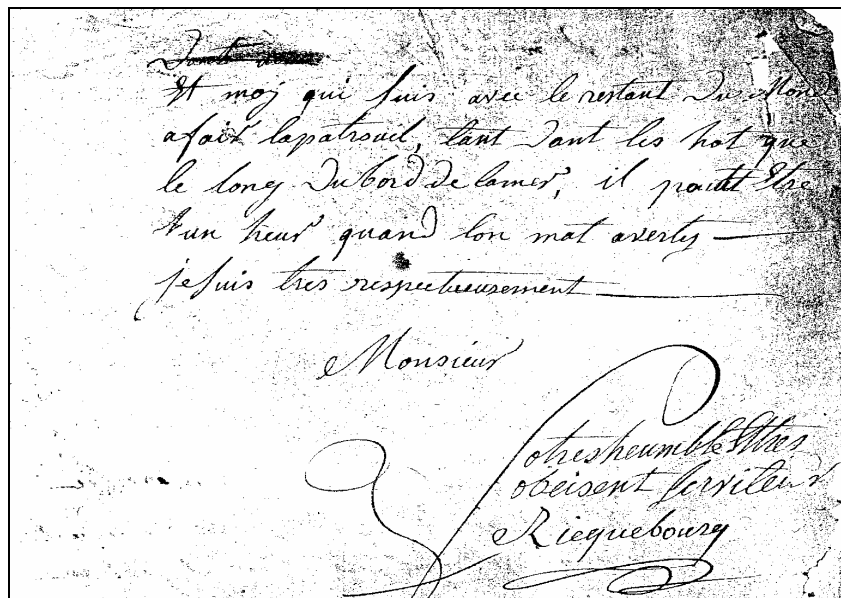 Et moy qui suis avec le restant Du Mond
a fait lapatrouil, tant Dant les hot que
le long Du bord De lamer, il pouvt Etre
une heur quand lon mat averty
je suis tres respectueusement
Monsieur
Votres heumble Et tres
obeisent serviteur
Ricquebourg